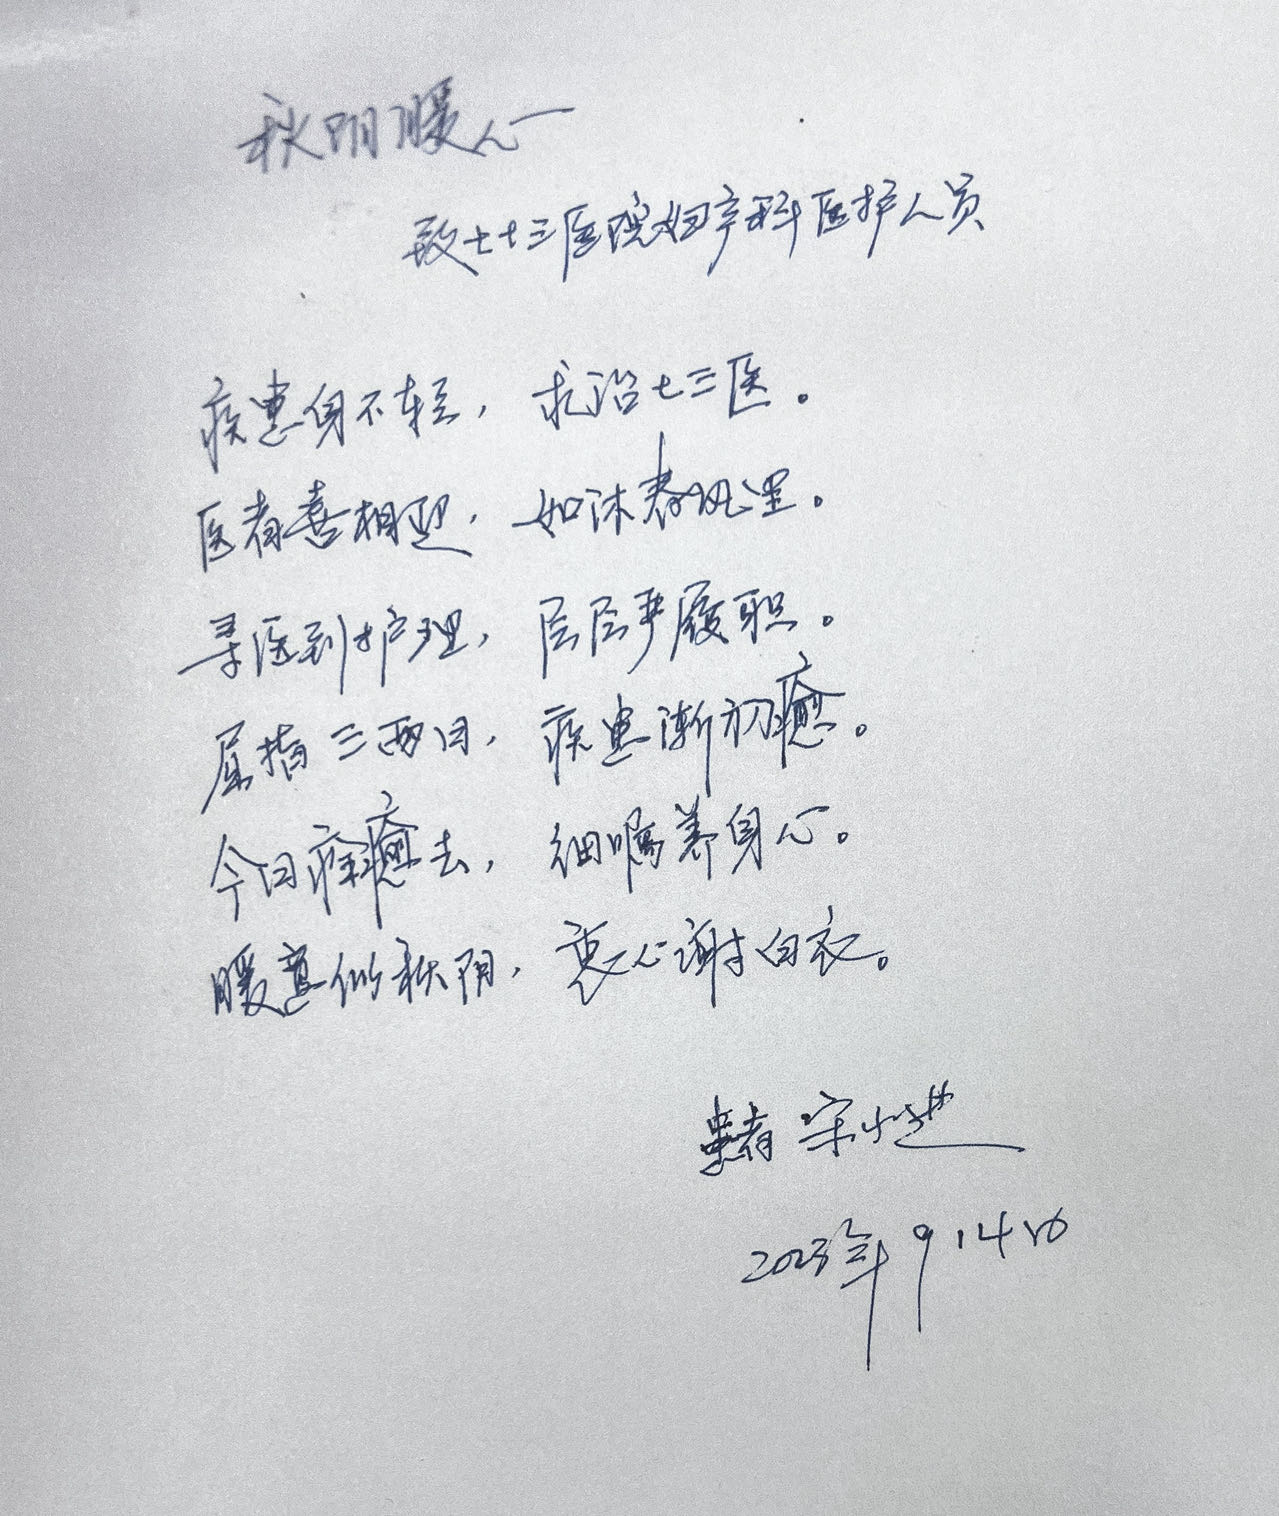 秋阴暖心
致七十三医院妇产科医护人员
疾患身不轻，求治七三医。
医者喜相迎，如沐春风里。
寻医到护理，层层严履职。
屈指三两日，疾患渐初愈。
今日痊癒去，细嘱养身心。
暖意似秋阴，衷心谢白衣。
患者 宋
2023年9.14日